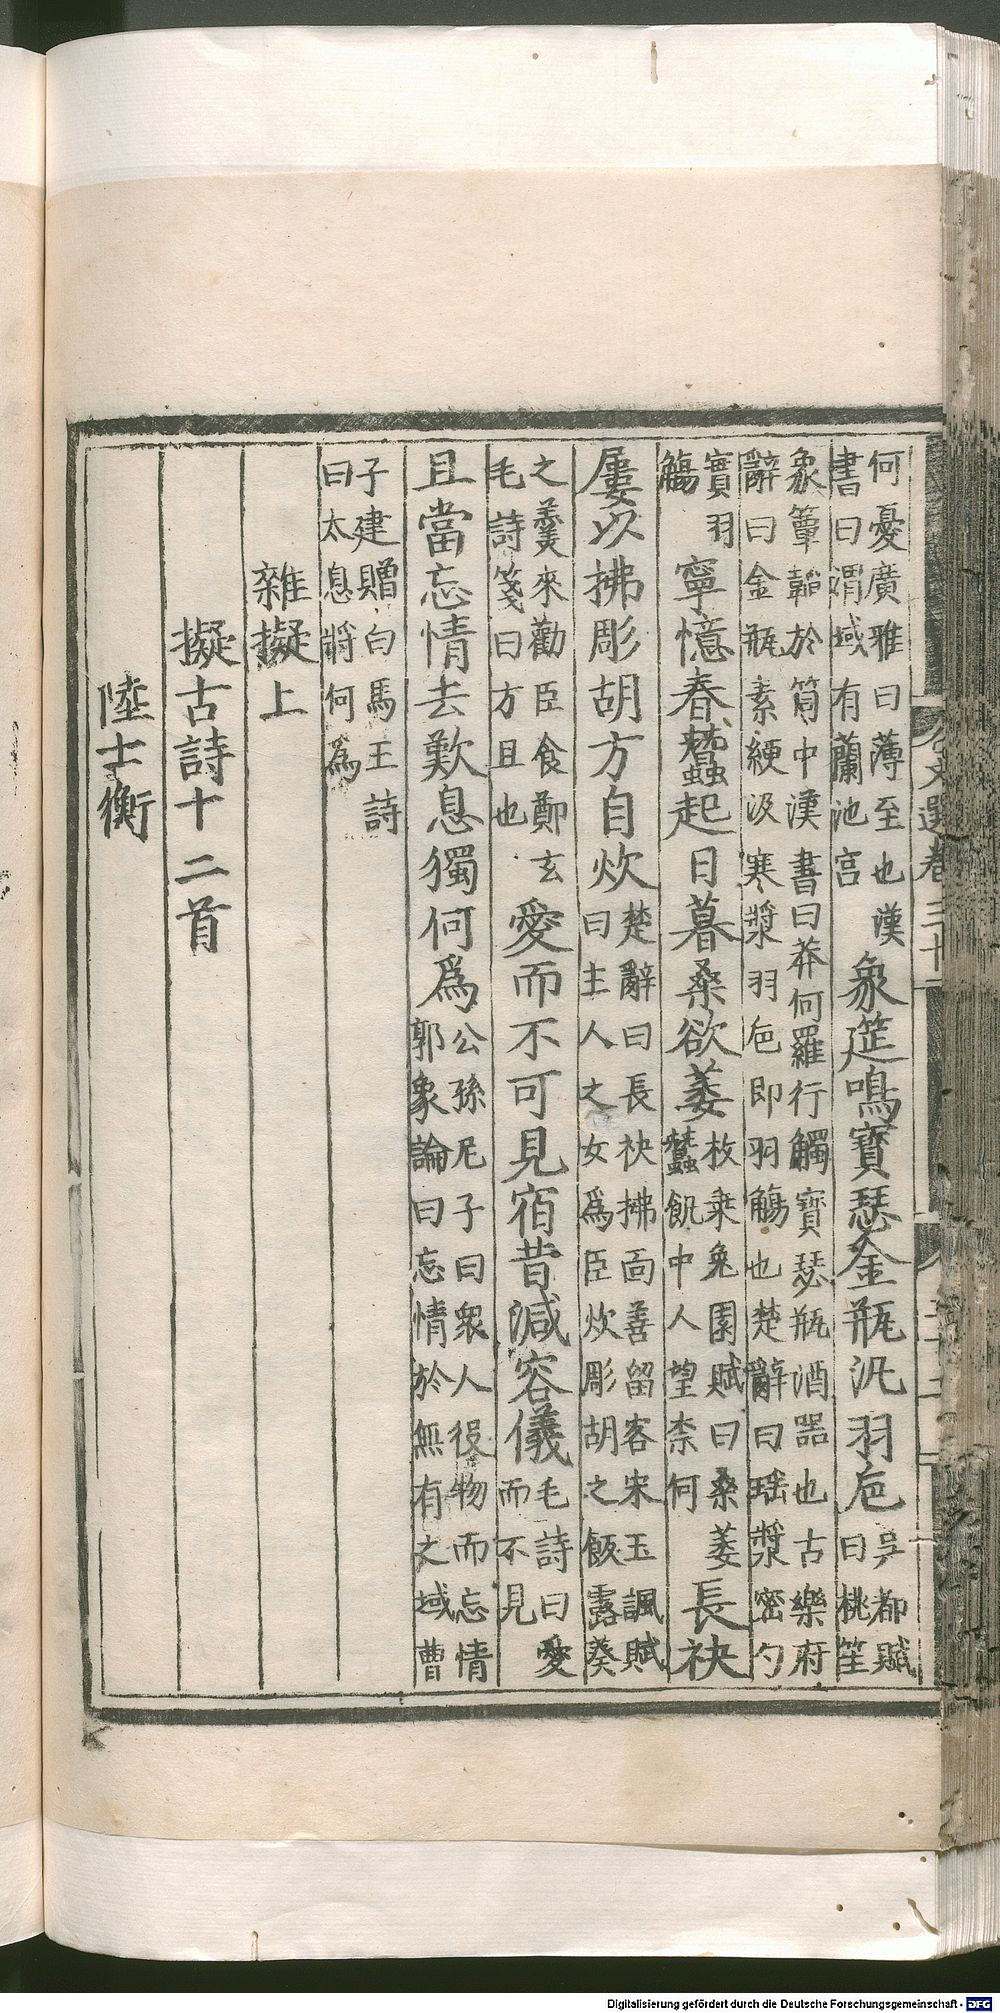 何憂廣雅曰薄至也漢
書曰渭域有蘭池宮
象筵鳴寶瑟金瓶汎羽卮
吳都賦
曰桃笙
象簟韜於筒中漢書曰莽何羅行觸寶瑟瓶酒器也古樂府
辭曰金瓶素綆汲寒漿羽卮即羽觴也楚辭曰瑤漿蜜勺
實羽
觴
寧憶春蠶起日暮桑欲萎
枚乘兔園賦曰桑萎
蠶飢中人望柰何
長袂
屢以拂彫胡方自炊
楚辭曰長袂拂面善留客宋玉諷賦
曰主人之女爲臣炊彫胡之飯露葵
之羹來勸臣食鄭玄
毛詩箋曰方且也
愛而不可見宿昔減容儀
毛詩曰愛
而不見
且當忘情去歎息獨何爲
公孫尼子曰衆人役物而忘情
郭象論曰忘情於無有之域曹
子建贈白馬王詩
曰太息將何為
雜擬上
擬古詩十二首
陸士衡
Digitalisierung gefördert durch die Deutsche Forschungsgemeinschaft - DFG